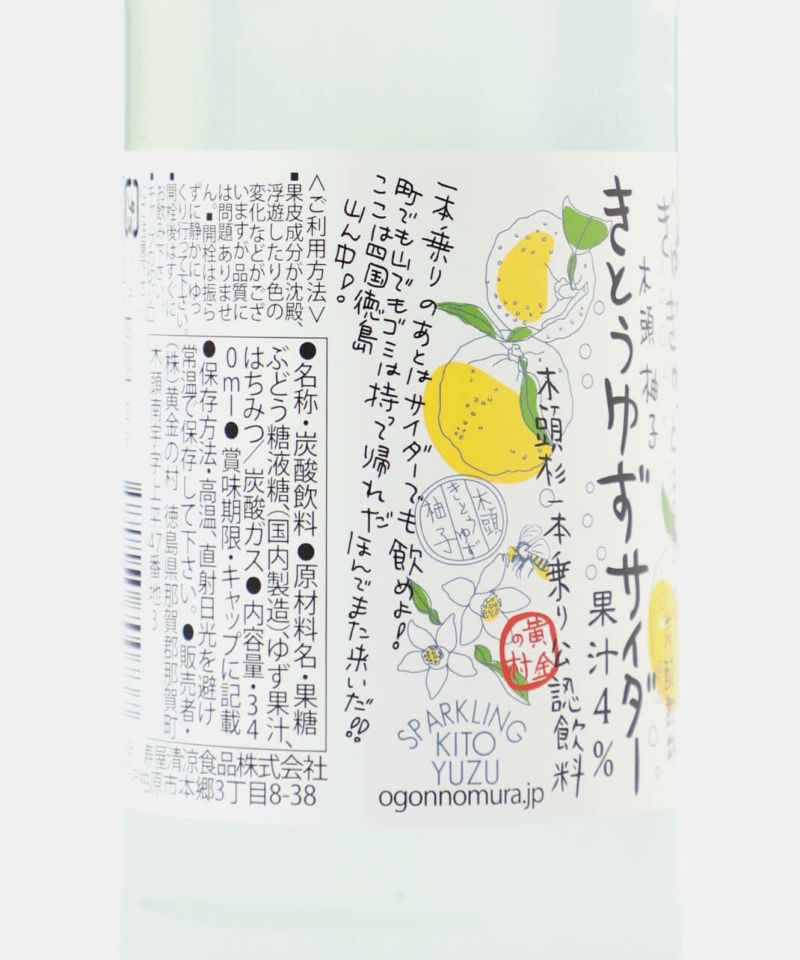 きとうゆずサイダー
木頭 柚子
果汁4%
木頭杉一本乗り公認飲料
木頭
きとうゆず
柚子
黄金
の村
SPARKLING
KITO
YUZU
ogonnomura.jp
一本乗りのあとはサイダーでも飲めよ!
町でも山でもゴミは持って帰れだ
ここは四国徳島
山ん中!
ほんでまた来いだ!!
<ご利用方法>
■果皮成分が沈殿、
浮遊したり色の
変化などがござ
いますが品質に
は問題ありませ
ん。■開栓は振ら
ずに静かにゆっ
くり行って下さい。
■開栓後はすぐに
お飲み下さい。
●名称・炭酸飲料 ●原材料名・果糖
ぶどう糖液糖(国内製造)、ゆず果汁、
はちみつ/炭酸ガス ●内容量・34
0ml ●賞味期限・キャップに記載
●保存方法・高温、直射日光を避け
常温で保存して下さい。●販売者・
(株)黄金の村 徳島県那賀郡那賀町
木頭南宇字上平47番地3
寿屋清涼食品株式会社
柏原市本郷3丁目8-38